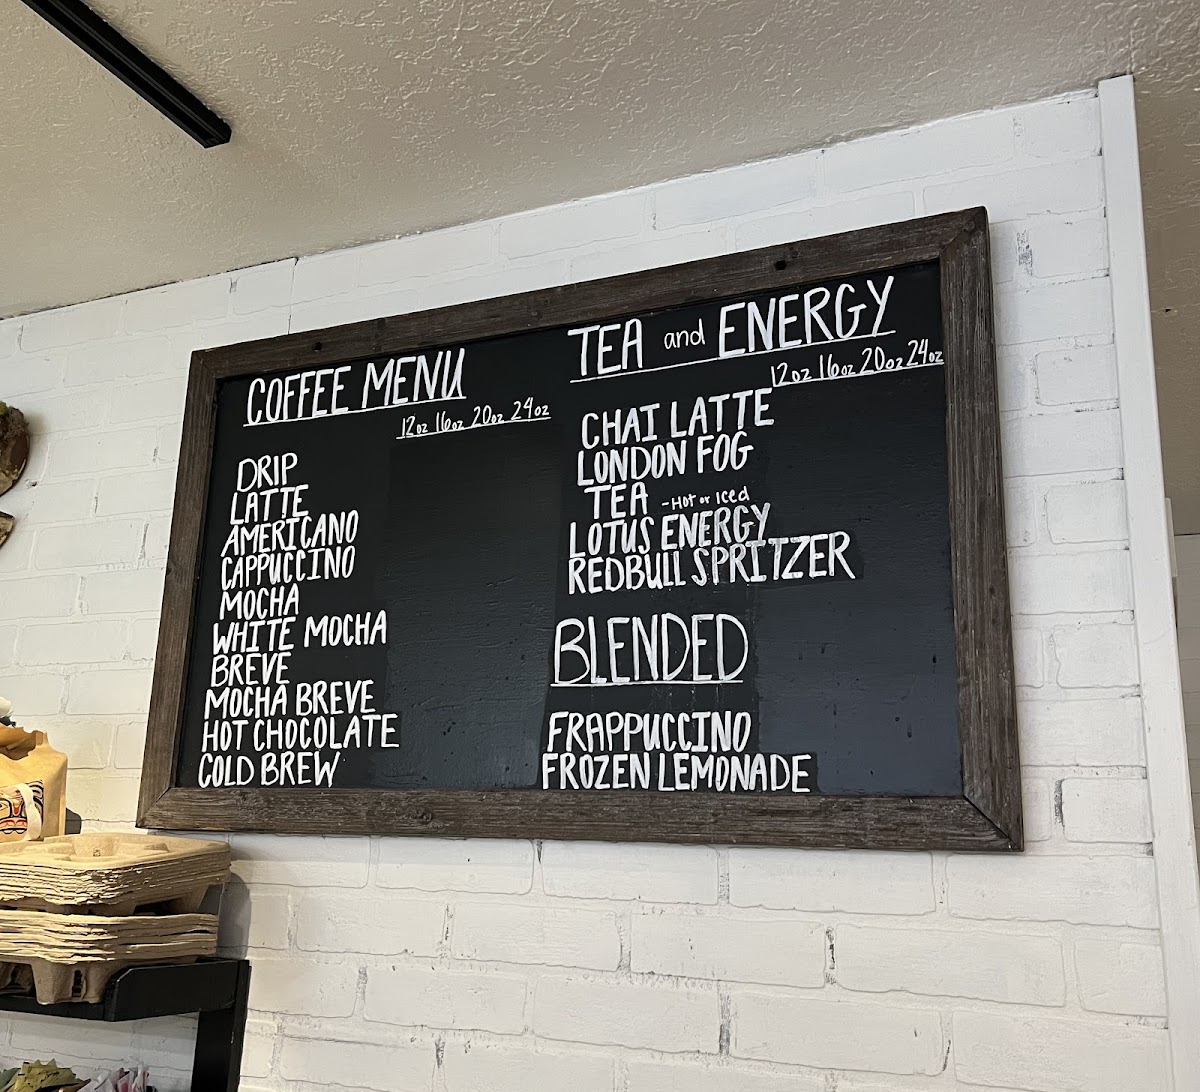 COFFEE MENU
12oz 16oz 20oz 24oz
DRIP
LATTE
AMERICANO
CAPPUCCINO
MOCHA
WHITE MOCHA
BREVE
MOCHA BREVE
HOT CHOCOLATE
COLD BREW
TEA and ENERGY
12oz 16oz 20oz 24oz
CHAI LATTE
LONDON FOG
TEA -HOT or ICed
LOTUS ENERGY
REDBULL SPRITZER
BLENDED
FRAPPUCCINO
FROZEN LEMONADE